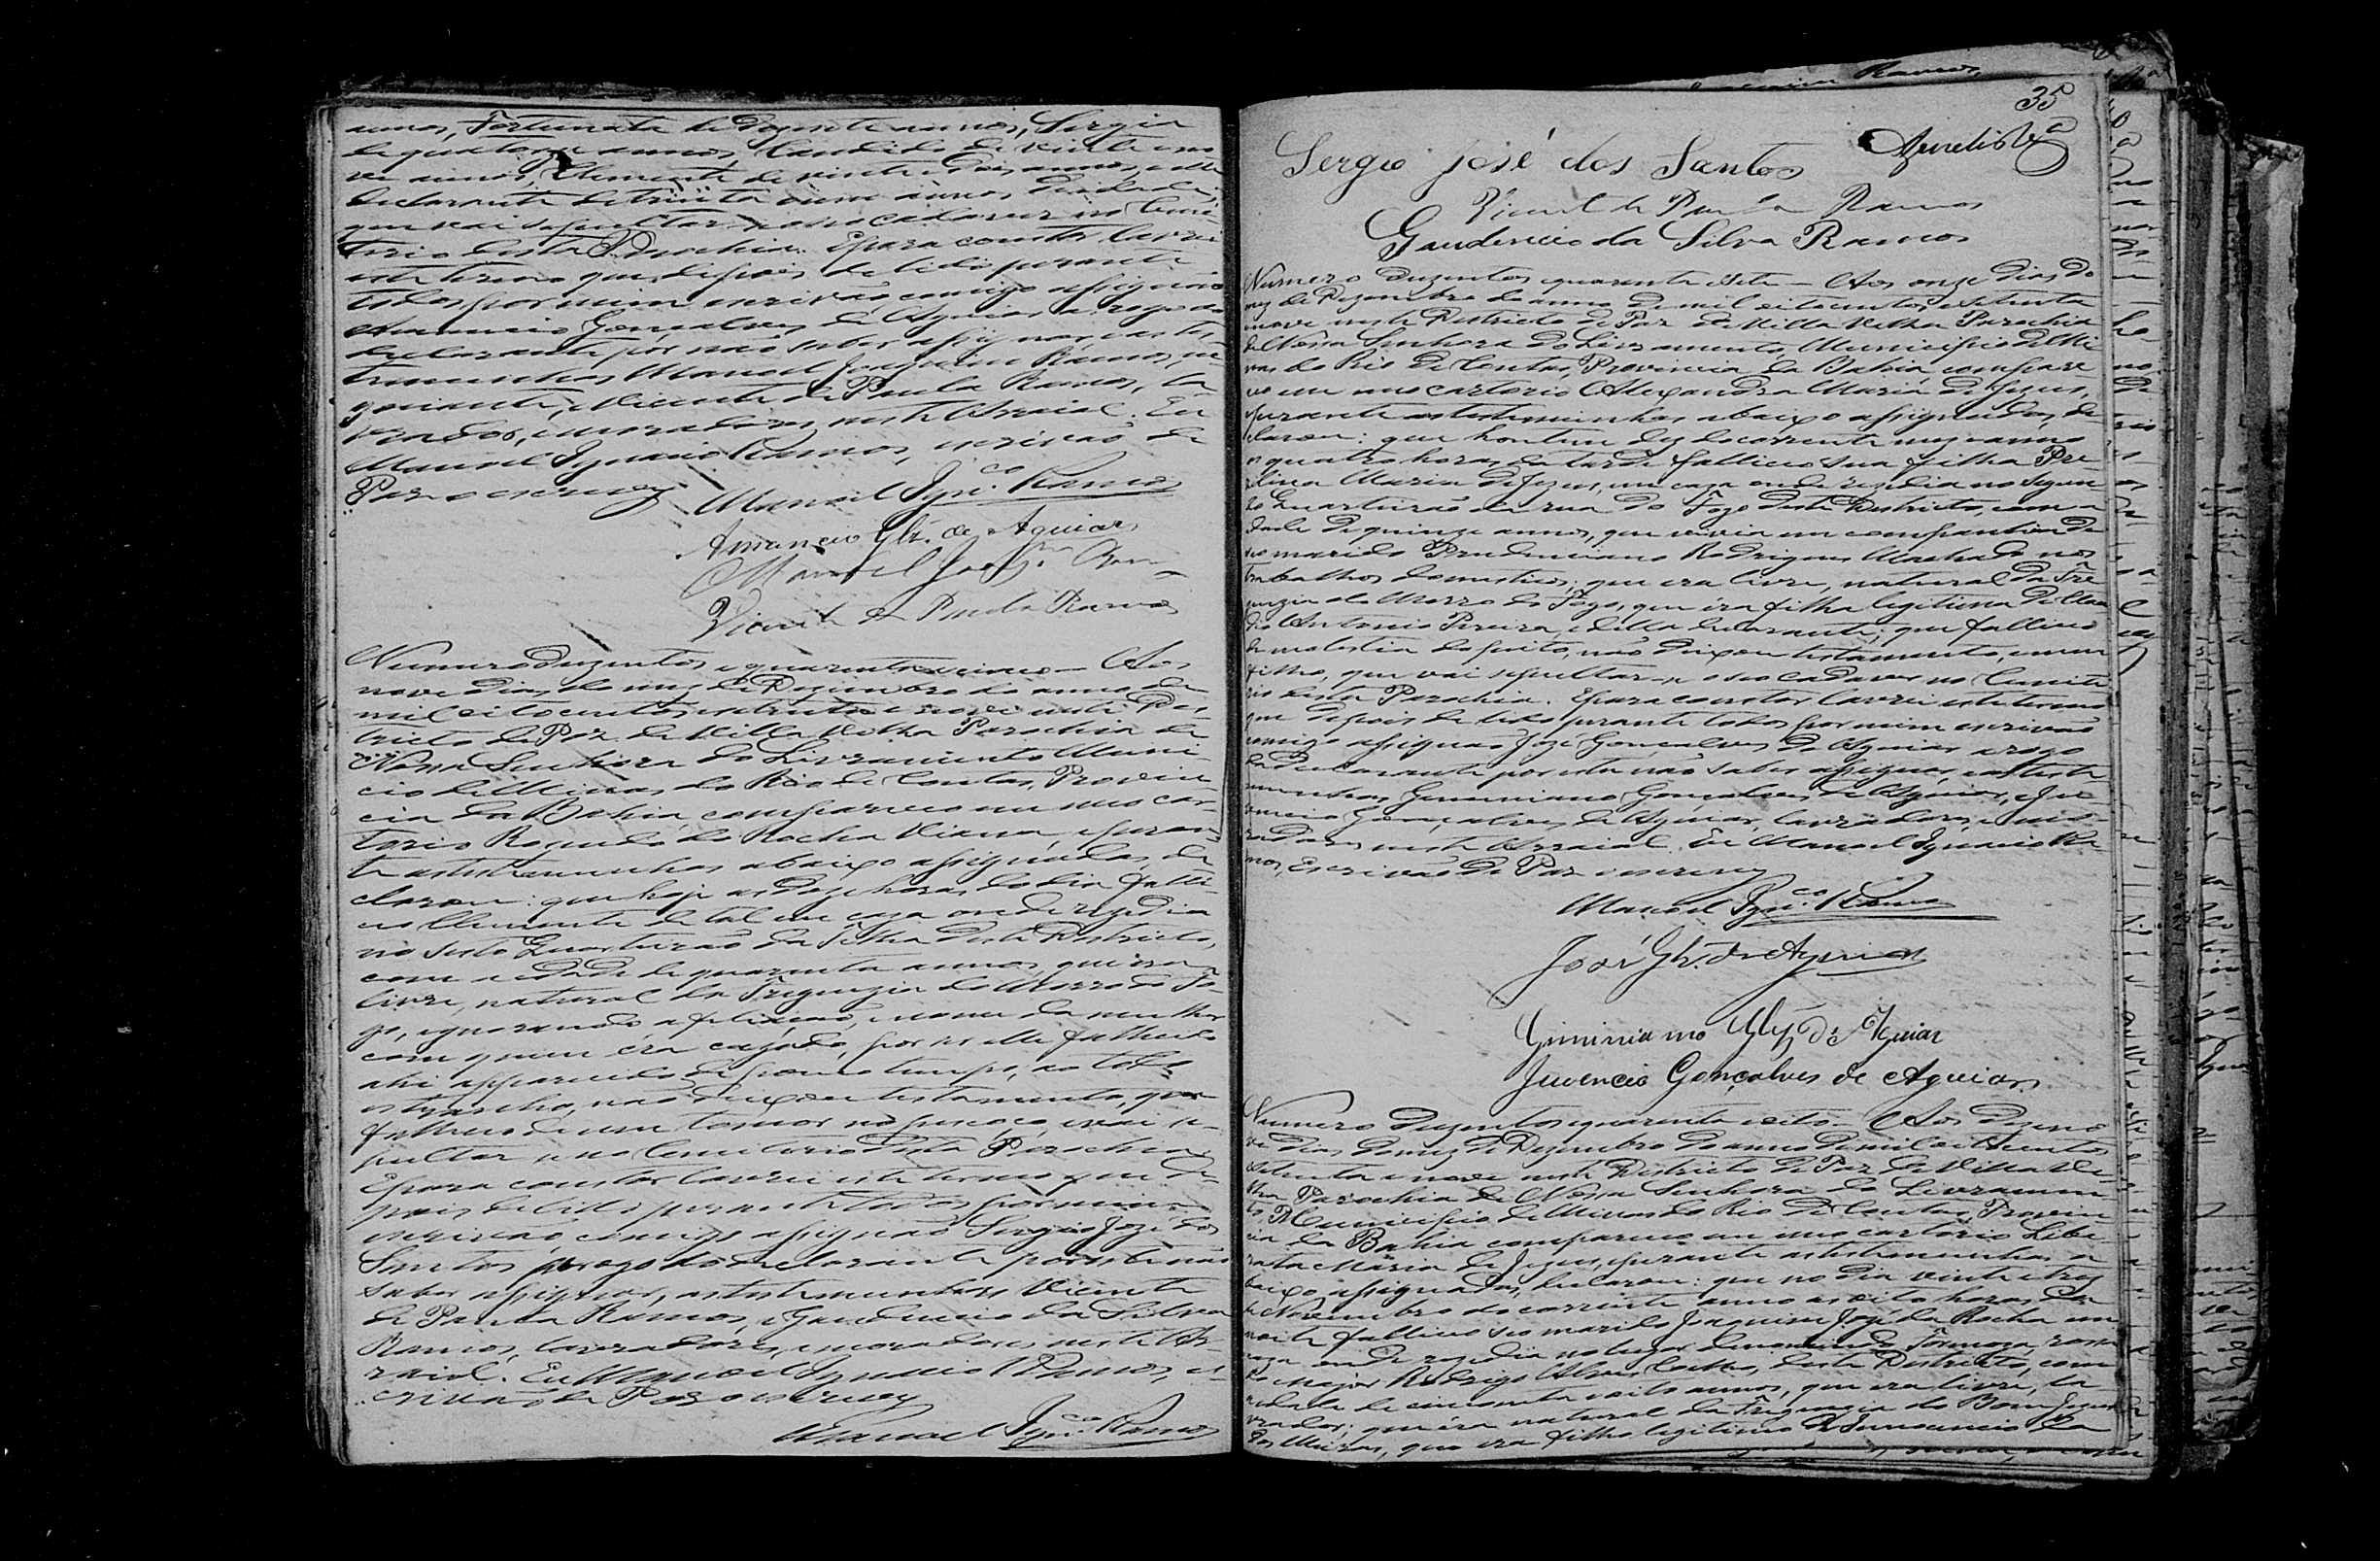 annos, Fortunata de dozoito annos, Sergia
de quatorze annos, Candido de vinte e no
ve annos, Clemente de vinte e dois annos, e elle
declarante de trinta e um annos de idade,
que vai sepultar-se o seo cadaver no Cemi
terio desta Parochia. E para constar lavrei
este termo que depois de lido perante
todos por mim escrivão, comigo assignão
Amancio Gonçalves de Aguiar a rogo do
declarante por não saber assignar, e as tes
temunhas Manoel Joaquim Ramos, ne
gociante, e Vicente de Paula Ramos, la
vrador, e moradores neste Arraial. Eu
Manoel Ignacio Ramos, escrivão de
Paz o escrevy
Manoel Ign.co Ramos
Amancio Glz. de Aguiar
Manoel Joaq.m Ramos
Vicente de Paula Ramos
Numero duzentos e quarenta e cinco – Aos
nove dias do mez de Dezembro do anno de
mil oitocentos e setenta e nove neste Des-
tricto de Paz de Villa Velha Parochia de
Nossa Senhora do Livramento Muni
cipio de Minas do Rio de Contas, Provin-
cia da Bahia, compareceo em meo car-
torio da Rocha Vianna, e peran-
te as testemunhas abaixo assignadas, de
clarou: que hoje as doze horas do dia falle-
ceo Clemente de tal em caza onde rezidia
no sexto Quarteirão da deste Destricto,
com a idade de quarenta annos, que era
livre, natural da Freguezia do Morro do Fo-
go, ignorando a filiação, e nome da mulher
com quem era cazado, por ser elle fallecido
ahi apparecido de pouco tempo,
não deixou testamento, que
falleceo de um tumor no pescoço, e vai se-
pultar-se no Cemiterio desta Parochia.
E para constar lavrei este termo que de-
pois de lido perante todos por mim
escrivão, comigo assignão Sergio Jozé dos
Santos a rogo do declarante por este não
saber assignar, as testemunhas Vicente
de Paula Ramos, e Gaudencio da Silva
Ramos, lavradores, e moradores neste Ar-
raial. Eu Manoel Ignacio Ramos, es-
crivão de Paz o escrevy
Manoel Ign.co Ramos
35
Sergio José dos Santos
Vicente de Paula Ramos
Gaudencio da Silva Ramos
Numero duzentos quarenta e sete – Aos onze dias do
mez de Dezembro do anno de mil oitocentos e setenta
e nove neste Destricto de Paz de Villa Velha Parochia
de Nossa Senhora do Livramento, Municipio de Mi
nas do Rio de Contas, Provincia da Bahia, compare-
ceo em meo cartorio Alexandra Maria de Jezus,
e perante as testemunhas abaixo assignadas, de-
clarou: que hontem dez do corrente mez e anno
as quatro horas da tarde falleceo sua filha
Maria de Jezus, em caza onde rezidia no segun-
do Quarteirão da rua do Fogo deste Destricto, com a
idade de quinze annos, que vivia em companhia de
seo marido Prudenciano Rodrigues Machado nos
trabalhos domesticos; que era livre, natural da Fre
guezia do Morro do Fogo, que era filha legitima de Clau
dio Antonio Pereira, e della declarante; que falleceo
de molestia do peito, não deixou testamento, e nem
filho, que vai sepultar-se o seo cadaver no Cemite
rio desta Parochia. E para constar lavrei este termo
que depois de lido perante todos por mim escrivão
comigo assignão Jozé Gonçalves de Aguiar a rogo
da declarante por esta não saber assignar, e as teste-
munhas Geminiano Gonçalves de Aguiar, e Ju-
vencio Gonçalves de Aguiar, lavradores, e mo-
radores neste Arraial. Eu Manoel Ignacio Ra-
mos, Escrivão de Paz o escrevy
Manoel Ign.co Ramos
José Glz. de Aguiar
Giminianno Glz de Aguiar
Juvencio Gonçalves de Aguiar
Numero duzentos quarenta e oito – Aos dezeno
ve dias do mez de Dezembro do anno de mil oitocentos
setenta e nove neste Destricto de Paz de Villa Ve-
lha Parochia de Nossa Senhora do Livramen
to, Municipio de Minas do Rio de Contas, Provin-
cia da Bahia compareceo em meo cartorio Libe-
rata Maria de Jezus, e perante as testemunhas a
baixo assignadas, declarou: que no dia vinte e tres
de Novembro do corrente anno as oito horas da
noite falleceo seo marido Joaquim Jozé da Rocha em
caza onde rezidia no lugar denominado Formoza,
do Major Rodrigo Alves Coelho, deste Destricto, com
a idade de cincoenta e oito annos, que era livre, la-
vrador; que era natural da Freguezia do Bom Jezus
dos Meiras, que era filho legitimo de Innocencio da